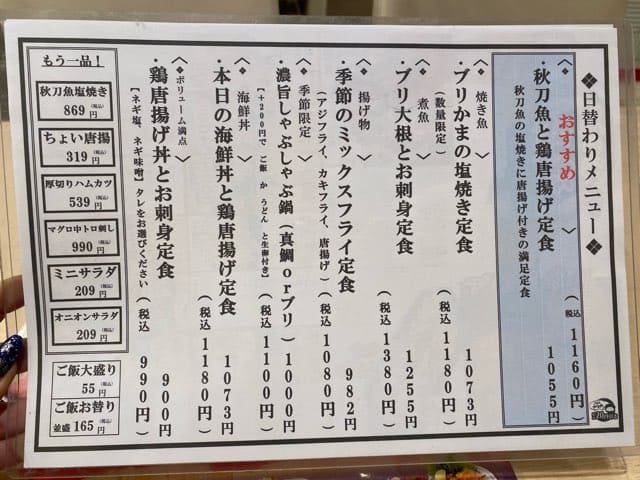 ❖日替わりメニュー❖
＜❖ おすすめ ＞
・秋刀魚と鶏唐揚げ定食 1055円
秋刀魚の塩焼きに唐揚げ付きの満足定食
(税込 1160円)
＜❖ 焼き魚 ＞
・ブリかまの塩焼き定食 1073円
(数量限定) (税込 1180円)
＜❖ 煮魚 ＞
・ブリ大根とお刺身定食 1255円
(税込 1380円)
＜❖ 揚げ物 ＞
・季節のミックスフライ定食 982円
(アジフライ、カキフライ、唐揚げ) (税込 1080円)
＜❖ 季節限定 ＞
・濃旨しゃぶしゃぶ鍋(真鯛orブリ) 1000円
【+200円で ご飯 か うどん と生卵付き】 (税込 1100円)
＜❖ 海鮮丼 ＞
・本日の海鮮丼と鶏唐揚げ定食 1073円
(税込 1180円)
＜❖ ボリューム満点 ＞
・鶏唐揚げ丼とお刺身定食 900円
【ネギ塩、ネギ味噌】タレをお選びください (税込 990円)
もう一品！
秋刀魚塩焼き
869円(税込)
ちょい唐揚
319円(税込)
厚切りハムカツ
539円(税込)
マグロ中トロ刺し
990円(税込)
ミニサラダ
209円(税込)
オニオンサラダ
209円(税込)
ご飯大盛り
55円(税込)
ご飯お替り
並盛165円(税込)